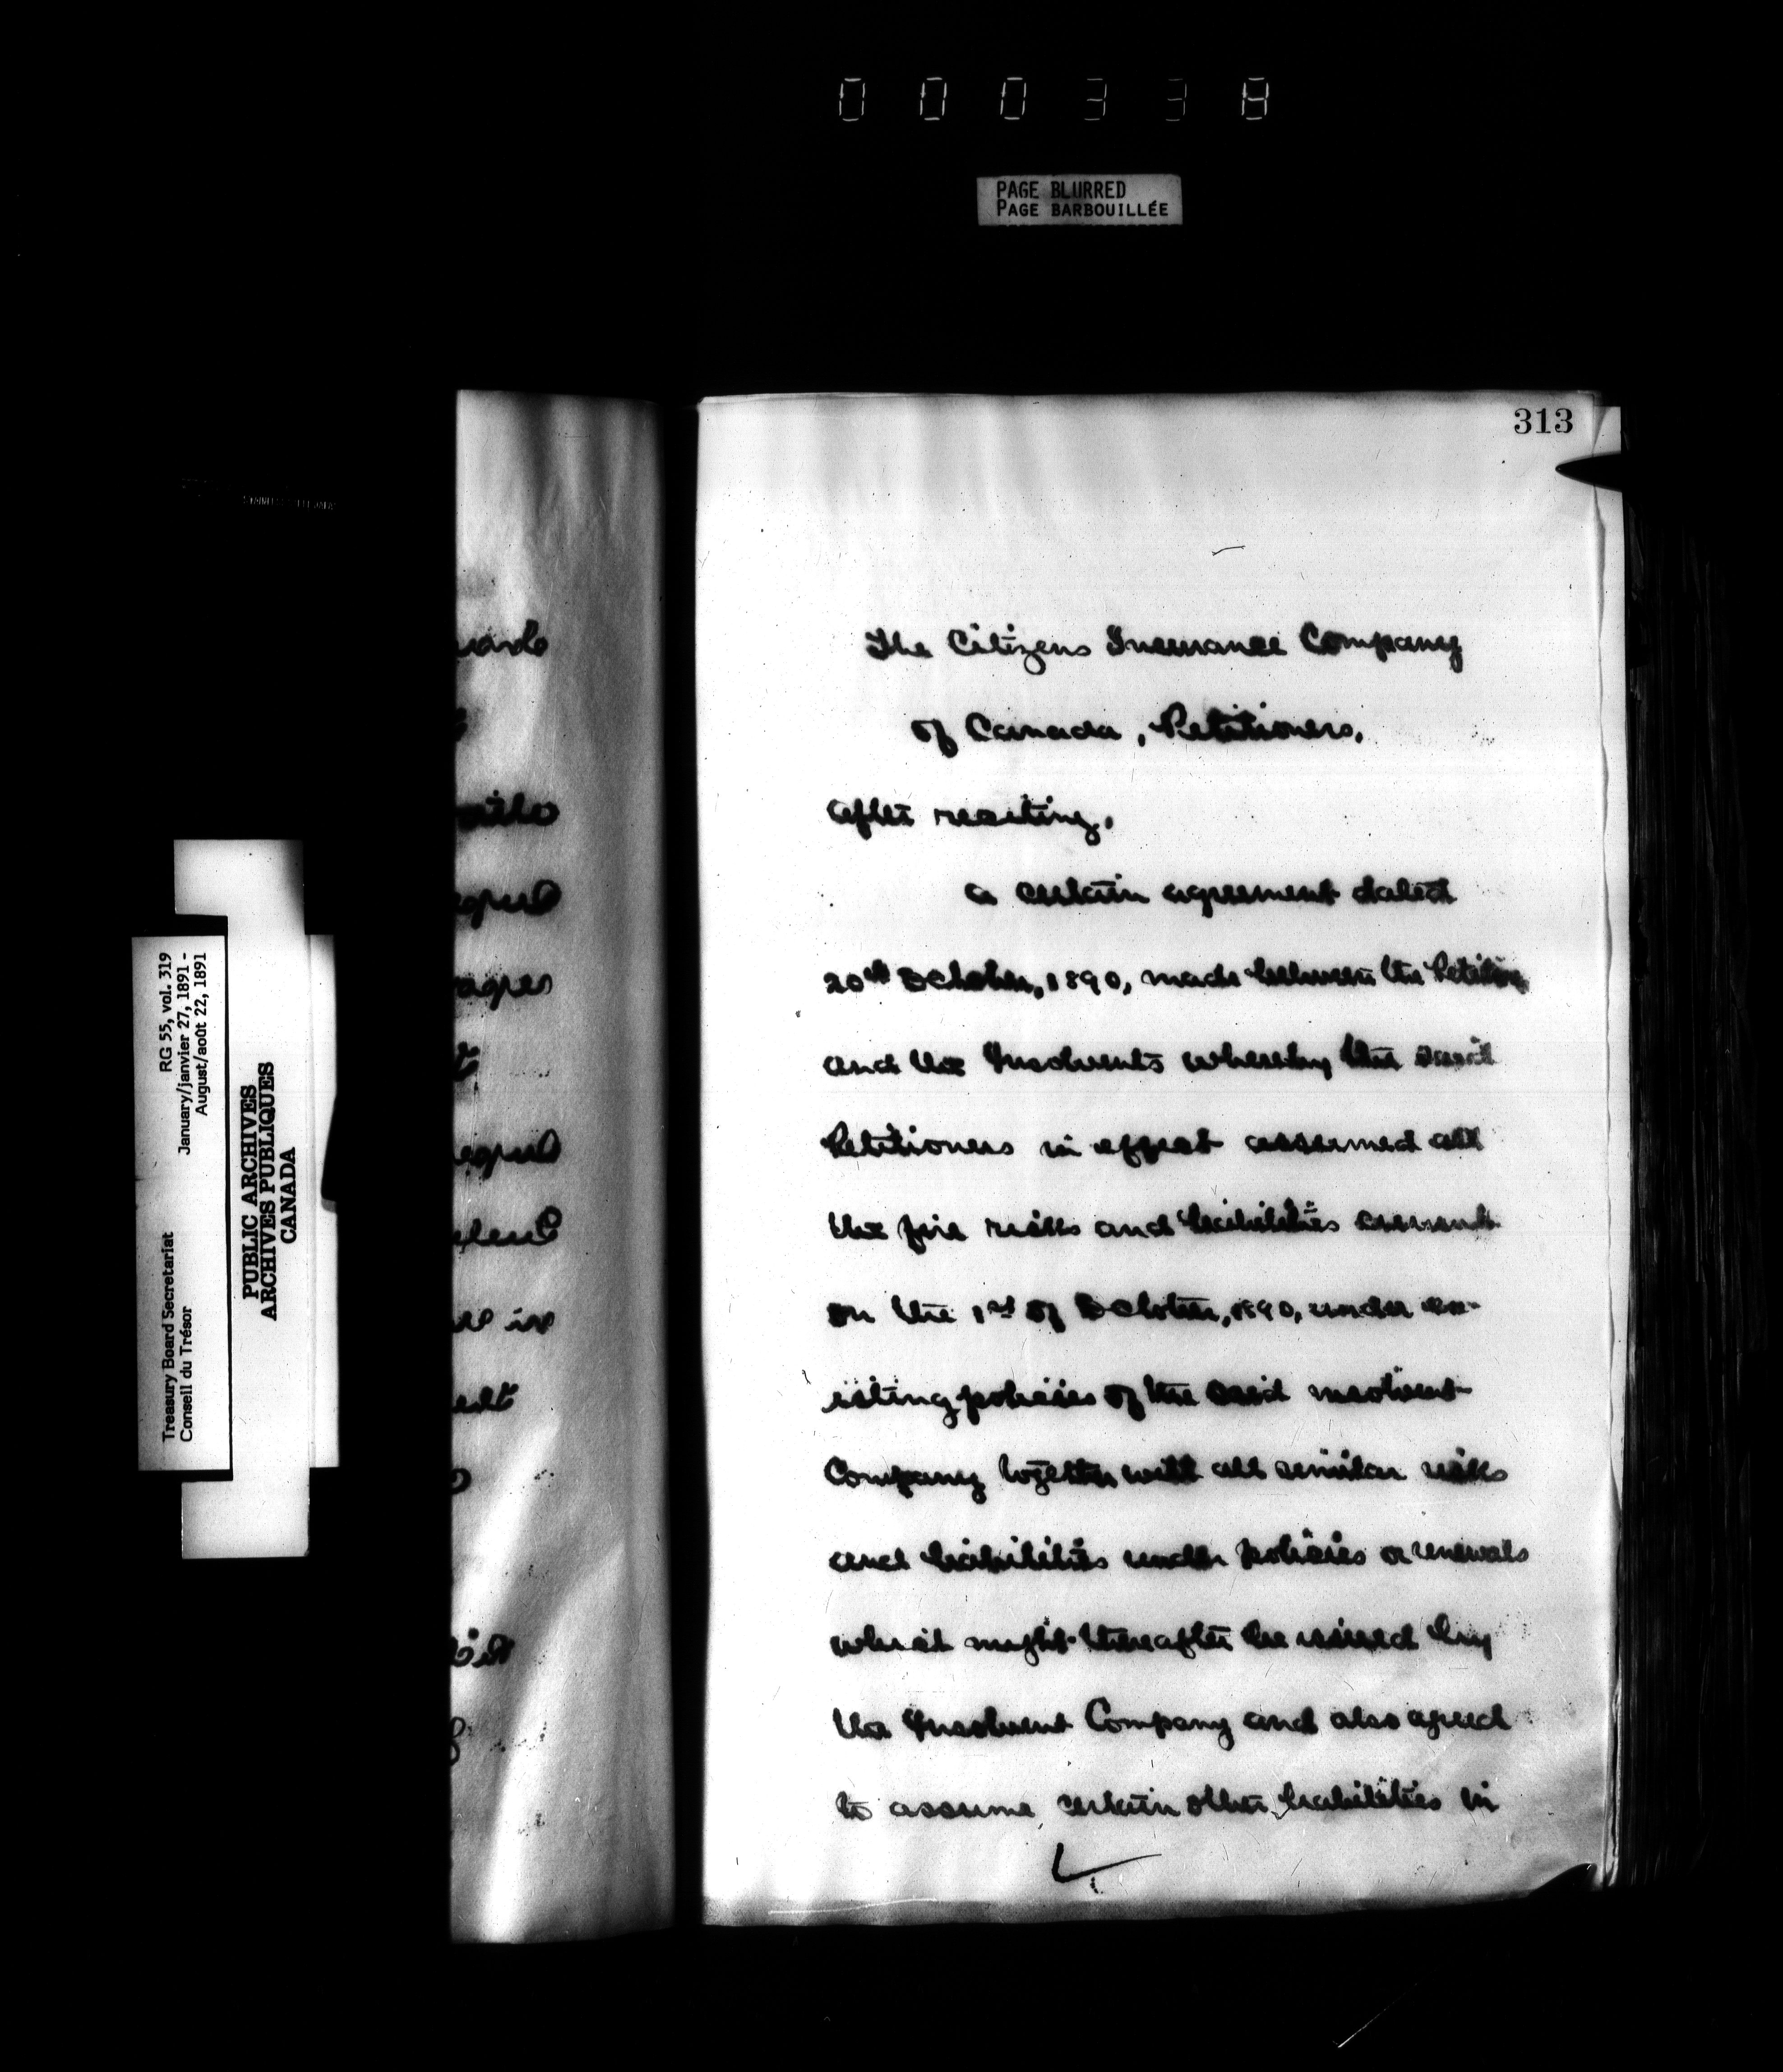 000338
PAGE BLURRED
PAGE BARBOUILLÉE
313
The Citizens Insurance Company
of Canada, Petitioners,
after reciting,
a certain agreement dated
20th October, 1890, made between the Petition
and the Insolvents whereby the said
Petitioners in effect assumed all
the fire risks and liabilities current
on the 1st of October, 1890, under ex-
isting policies of the said insolvent
Company together with all similar risks
and liabilities under policies or renewals
which might thereafter be issued by
the Insolvent Company and also agreed
to assume certain other liabilities in
Treasury Board Secretariat RG 55, vol. 319
Conseil du Trésor January/janvier 27, 1891 -
August/août 22, 1891
PUBLIC ARCHIVES
ARCHIVES PUBLIQUES
CANADA